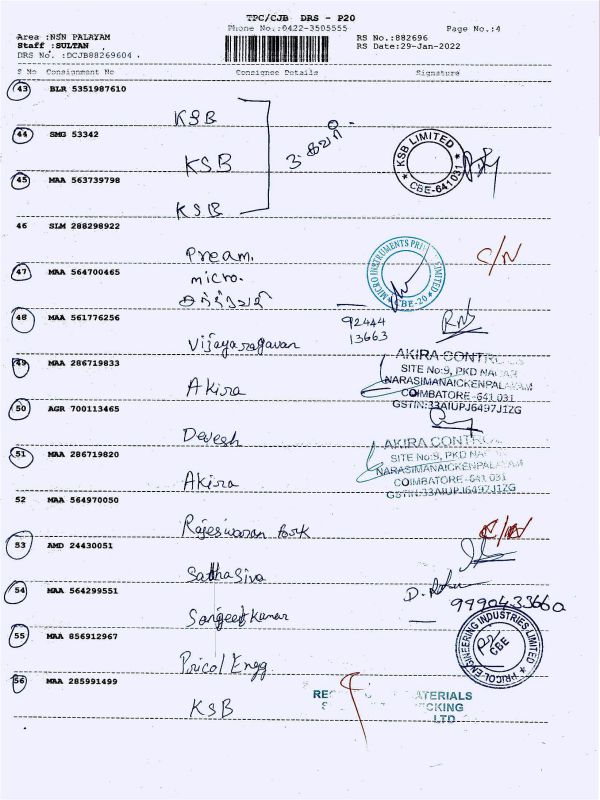 TPC/CJB DRS - P20
Phone No.:0422-3505555 Page No.:4
Area :NSN PALAYAM RS No.:882696
Staff :SULTAN RS Date:29-Jan-2022
DRS No. :DCJB88269604
S No Consignment No Consignee Details Signature
43 BLR 5351987610
KSB
44 SMG 53342
KSB
KSB LIMITED
CBE-641031
45 MAA 563739798
KSB
46 SLM 288298922
Pream.
C/N
47 MAA 564700465
micro.
MICRO INSTRUMENTS
LIMITED
CBE-20
48 MAA 561776256
92444
13663
Vijayaragavan
49 MAA 286719833
Akira
AKIRA CONTROLS
SITE No:9, PKD NAGAR
NARASIMANAICKENPALAYAM
COIMBATORE-641 031
GSTIN:33AIUPJ6497J1ZG
50 AGR 700113465
Devesh
51 MAA 286719820
Akira
AKIRA CONTROLS
SITE No:9, PKD NAGAR
NARASIMANAICKENPALAYAM
COIMBATORE-641 031
GSTIN:33AIUPJ6497J1ZG
52 MAA 564970050
Rajeswaran
C/N
53 AMD 24430051
Sathasiva
54 MAA 564299551
Sangeetkumar
9990433660
55 MAA 856912967
Pricol Engg
PRICOL ENGINEERING INDUSTRIES LIMITED
CBE
56 MAA 285991499
KSB
ATERIALS
CKING
LTD